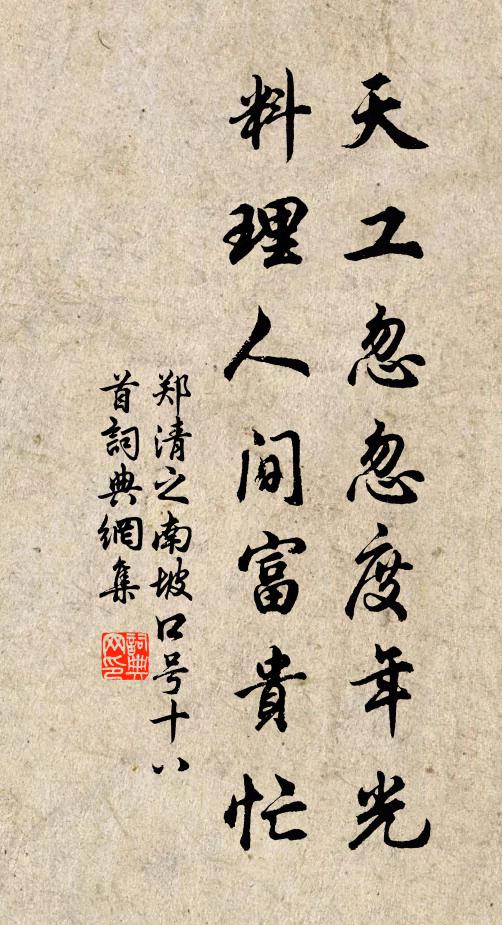 天工忽忽度年光
料理人间富貴忙
郑清之南坡口号十八
首詞典網集
詞典網印